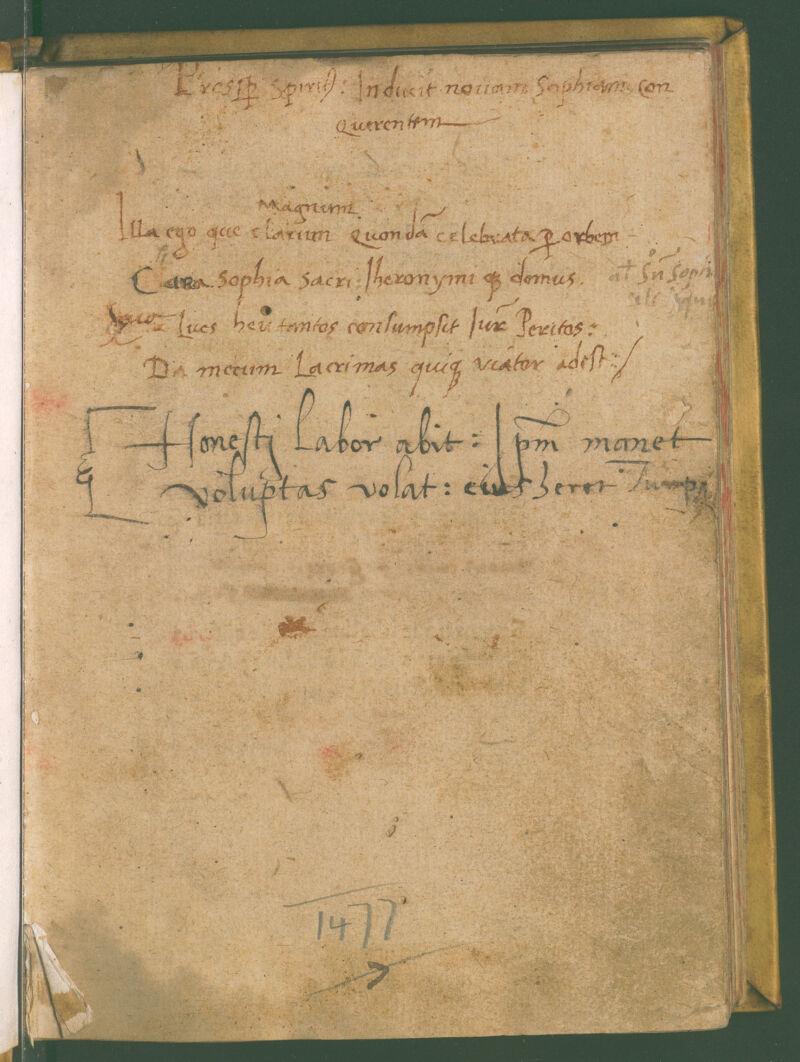 Prosp spirit: Inducit novam Sophiam con
querentem
Magnum
Illa ego que clarum quondã celebrata ꝑ orbem
Cara Sophia sacri Iheronymi qȝ domus.
Lues heu tantos consumpsit Iur Peritos:
Da mecum Lacrimas quisqȝ viator adest:/
Honesti Labor abit: Ipm manet
voluptas volat: eius heret
1477